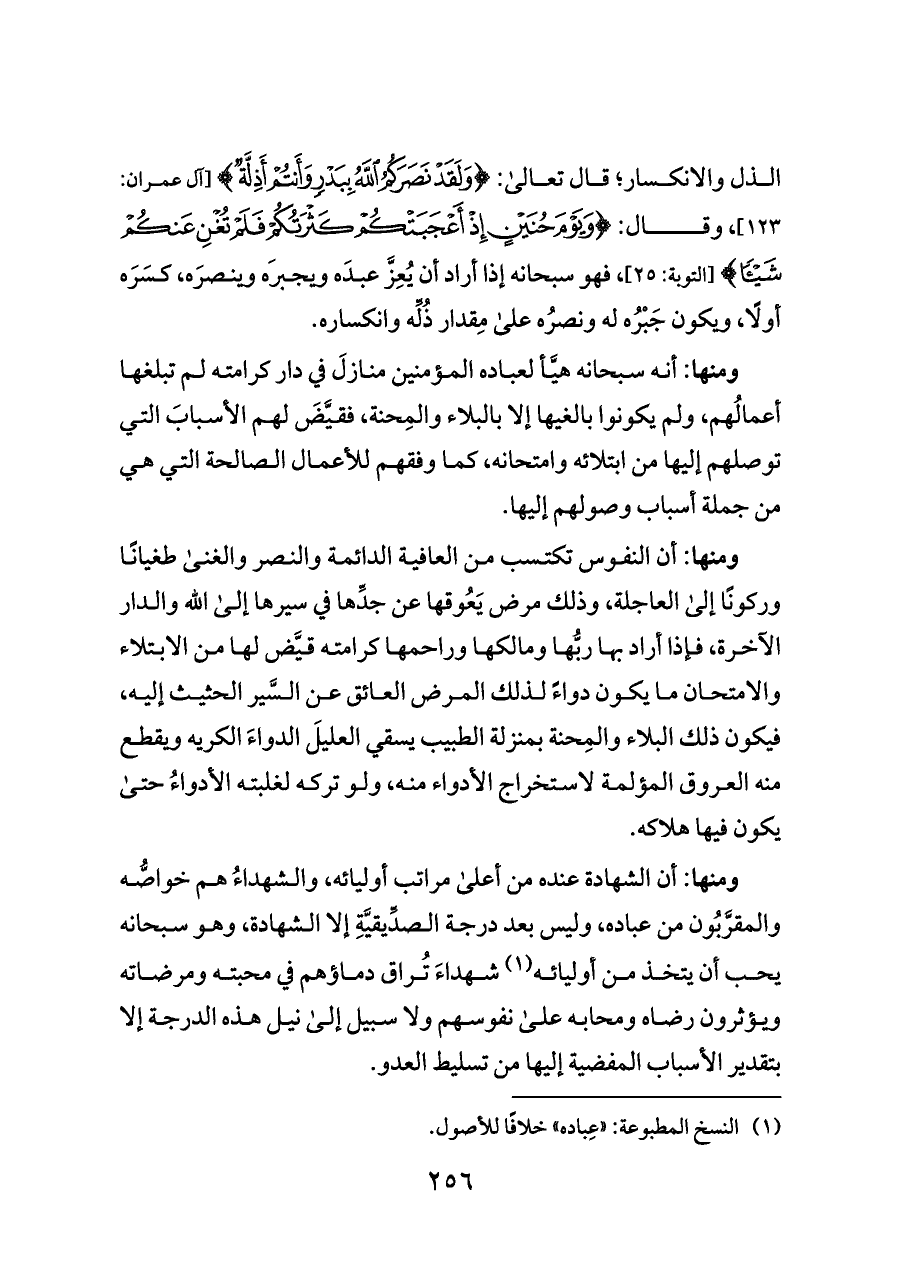 الـذل والانكـسار؛ قـال تعـالىٰ: ﴿وَلَقَدۡ نَصَرَكُمُ ٱللَّهُ بِبَدۡرٖ وَأَنتُمۡ أَذِلَّةٞ﴾ [آل عمـران:
١٢٣]، وقـــــال: ﴿وَيَوۡمَ حُنَيۡنٍ إِذۡ أَعۡجَبَتۡكُمۡ كَثۡرَتُكُمۡ فَلَمۡ تُغۡنِ عَنكُمۡ
شَيۡـٔٗا﴾ [التوبة: ٢٥]، فهو سبحانه إذا أراد أن يُعِزَّ عبـدَه ويجبـرَه وينـصرَه، كـسَرَه
أولًا، ويكون جَبْرُه له ونصرُه علىٰ مِقدار ذُلِّه وانكساره.
ومنها: أنـه سـبحانه هيَّـأ لعبـاده المـؤمنين منـازلَ في دار كرامتـه لـم تبلغهـا
أعمالُهم، ولم يكونوا بالغيها إلا بالبلاء والمِحنة، فقـيَّضَ لهـم الأسـبابَ التـي
توصلهم إليها من ابتلائه وامتحانه، كمـا وفقهـم للأعمـال الـصالحة التـي هـي
من جملة أسباب وصولهم إليها.
ومنها: أن النفـوس تكتـسب مـن العافيـة الدائمـة والنـصر والغنـىٰ طغيانًـا
وركونًا إلىٰ العاجلة، وذلك مرض يَعُوقها عن جدِّها في سيرها إلـىٰ الله والـدار
الآخـرة، فـإذا أراد بهـا ربُّهـا ومالكهـا وراحمهـا كرامتـه قـيَّض لهـا مـن الابـتلاء
والامتحـان مـا يكـون دواءً لـذلك المـرض العـائق عـن الـسَّير الحثيـث إليـه،
فيكون ذلك البلاء والمِحنة بمنزلة الطبيب يسقي العليلَ الدواءَ الكريه ويقطـع
منه العـروق المؤلمـة لاسـتخراج الأدواء منـه، ولـو تركـه لغلبتـه الأدواءُ حتـىٰ
يكون فيها هلاكه.
ومنها: أن الشهادة عنده من أعلىٰ مراتب أوليائه، والـشهداءُ هـم خواصُّـه
والمقرَّبُون من عباده، وليس بعد درجـة الـصدِّيقيَّةِ إلا الـشهادة، وهـو سـبحانه
يحـب أن يتخـذ مـن أوليائـه(١) شـهداءَ تُـراق دمـاؤهم في محبتـه ومرضـاته
ويـؤثرون رضـاه ومحابـه علـىٰ نفوسـهم ولا سـبيل إلـىٰ نيـل هـذه الدرجـة إلا
بتقدير الأسباب المفضية إليها من تسليط العدو.
(١) النسخ المطبوعة: «عِباده» خلافًا للأصول.
٢٥٦